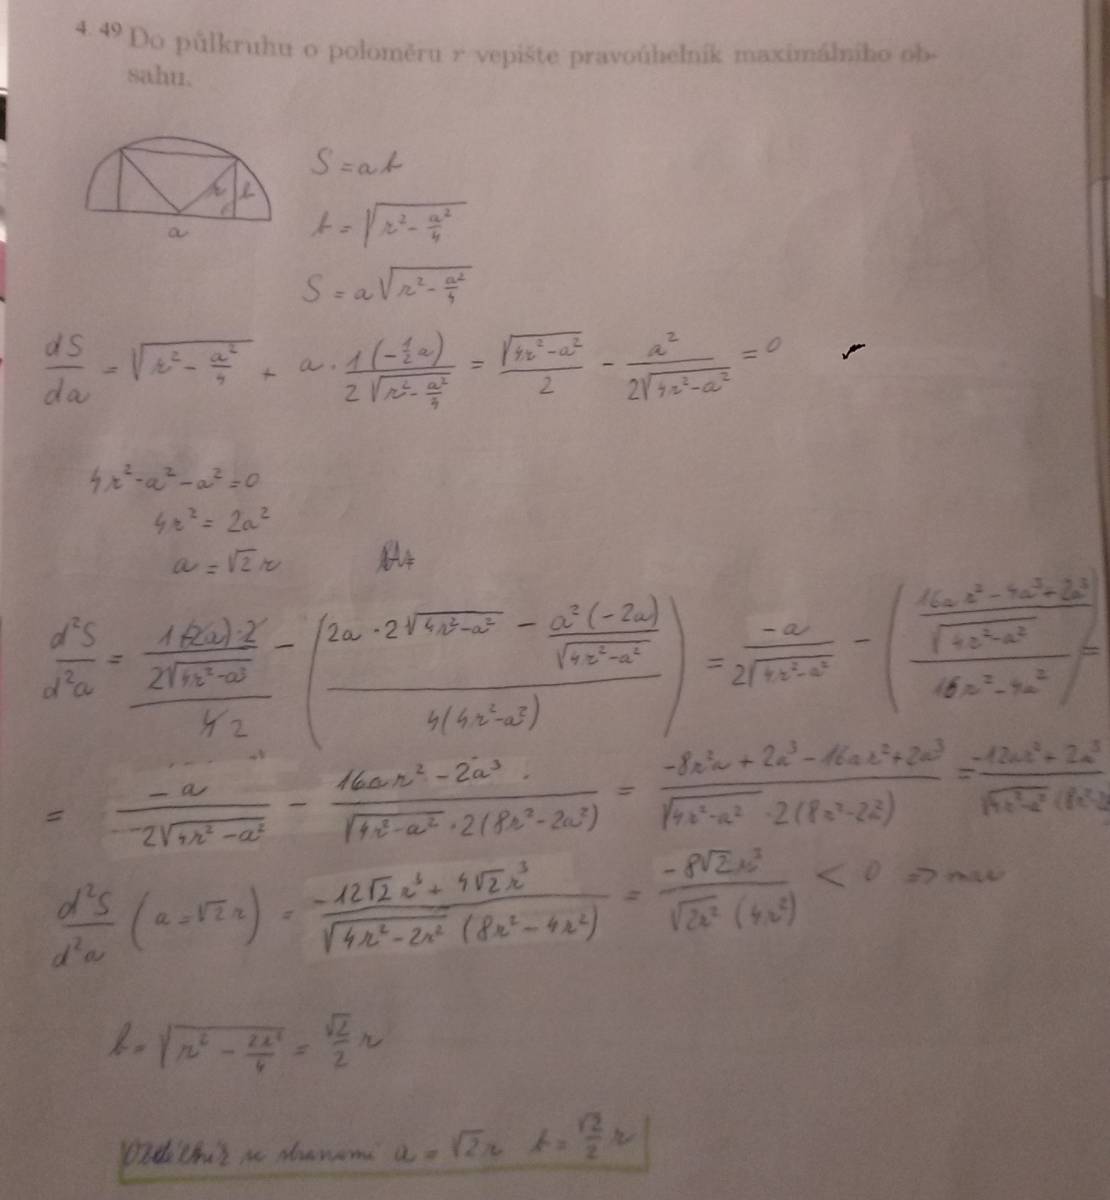 4.49 Do půlkruhu o poloměru r vepište pravoúhelník maximálního ob-
sahu.
S = ab
r b
b = √(r² - a²/4)
a
S = a√(r² - a²/4)
dS/da = √(r² - a²/4) + a · 1(-½a)/(2√(r² - a²/4)) = √(4r² - a²)/2 - a²/(2√(4r² - a²)) = 0
4r² - a² - a² = 0
4r² = 2a²
a = √2 r
d²S/d²a = (1(-2a)·2/(2√(4r² - a²)))/42 - ((2a · 2√(4r² - a²) - a²(-2a)/√(4r² - a²))/(4(4r² - a²))) = -a/(2√(4r² - a²)) - (((16ar² - 4a³ + 2a³)/√(4r² - a²))/(16r² - 4a²)) =
= -a/(2√(4r² - a²)) - (16ar² - 2a³)/(√(4r² - a²) · 2(8r² - 2a²)) = (-8r²a + 2a³ - 16ar² + 2a³)/(√(4r² - a²) · 2(8r² - 2a²)) = (-12ar² + 2a³)/(√(4r² - a²) (8r² - 2
d²S/d²a (a = √2 r) = (-12√2 r³ + 4√2 r³)/(√(4r² - 2r²) (8r² - 4r²)) = -8√2 r³/(√(2r²) (4r²)) < 0 => max
b = √(r² - 2r²/4) = √2/2 r
Obdélník se stranami a = √2 r b = √2/2 r